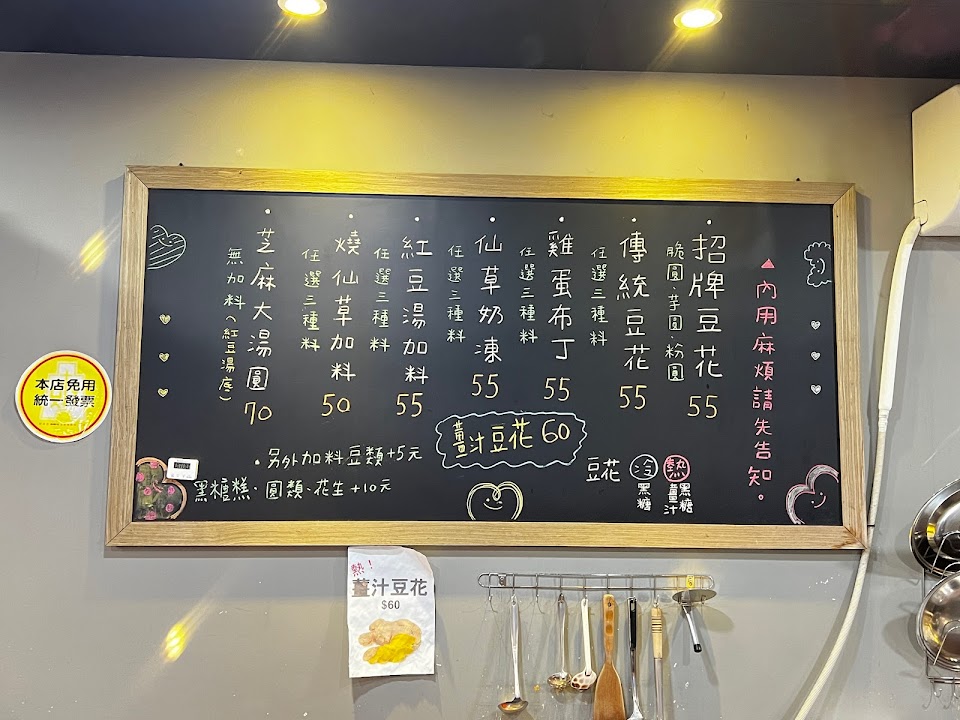 ▲內用麻煩請先告知。
招牌豆花 55
脆圓·芋圓·粉圓
傳統豆花 55
任選三種料
雞蛋布丁 55
任選三種料
仙草奶凍 55
任選三種料
紅豆湯加料 55
任選三種料
燒仙草加料 50
任選三種料
芝麻大湯圓 70
無加料(紅豆湯底)
薑汁豆花 60
·另外加料豆類+5元
黑糖糕·圓類·花生+10元
豆花
冷 黑糖
熱 黑糖 薑汁
本店免用
統一發票
熱!
薑汁豆花
$60